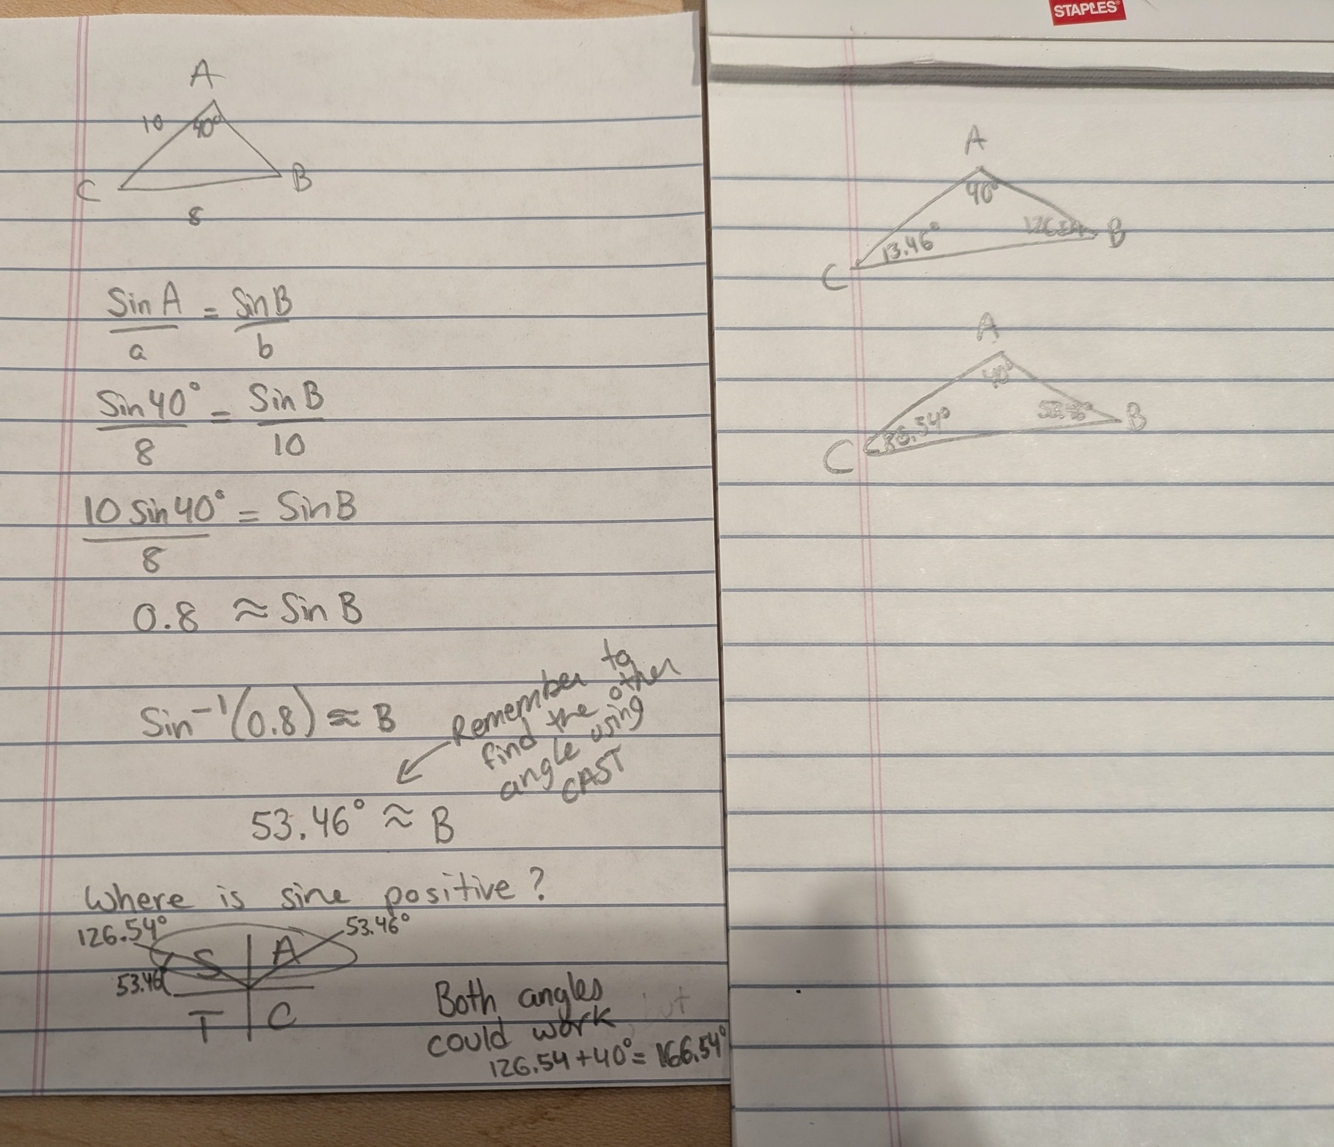 A
10
40°
C
B
8
Sin A / a = Sin B / b
Sin 40° / 8 = Sin B / 10
10 Sin 40° / 8 = Sin B
0.8 ≈ Sin B
Sin⁻¹(0.8) ≈ B
Remember to
find the other
angle using
CAST
53.46° ≈ B
Where is sine positive?
126.54°
53.46°
S
A
53.46
T
C
Both angles
could work
126.54+40°= 166.54°
STAPLES
A
40°
13.46°
126.54
B
C
A
40°
B
C